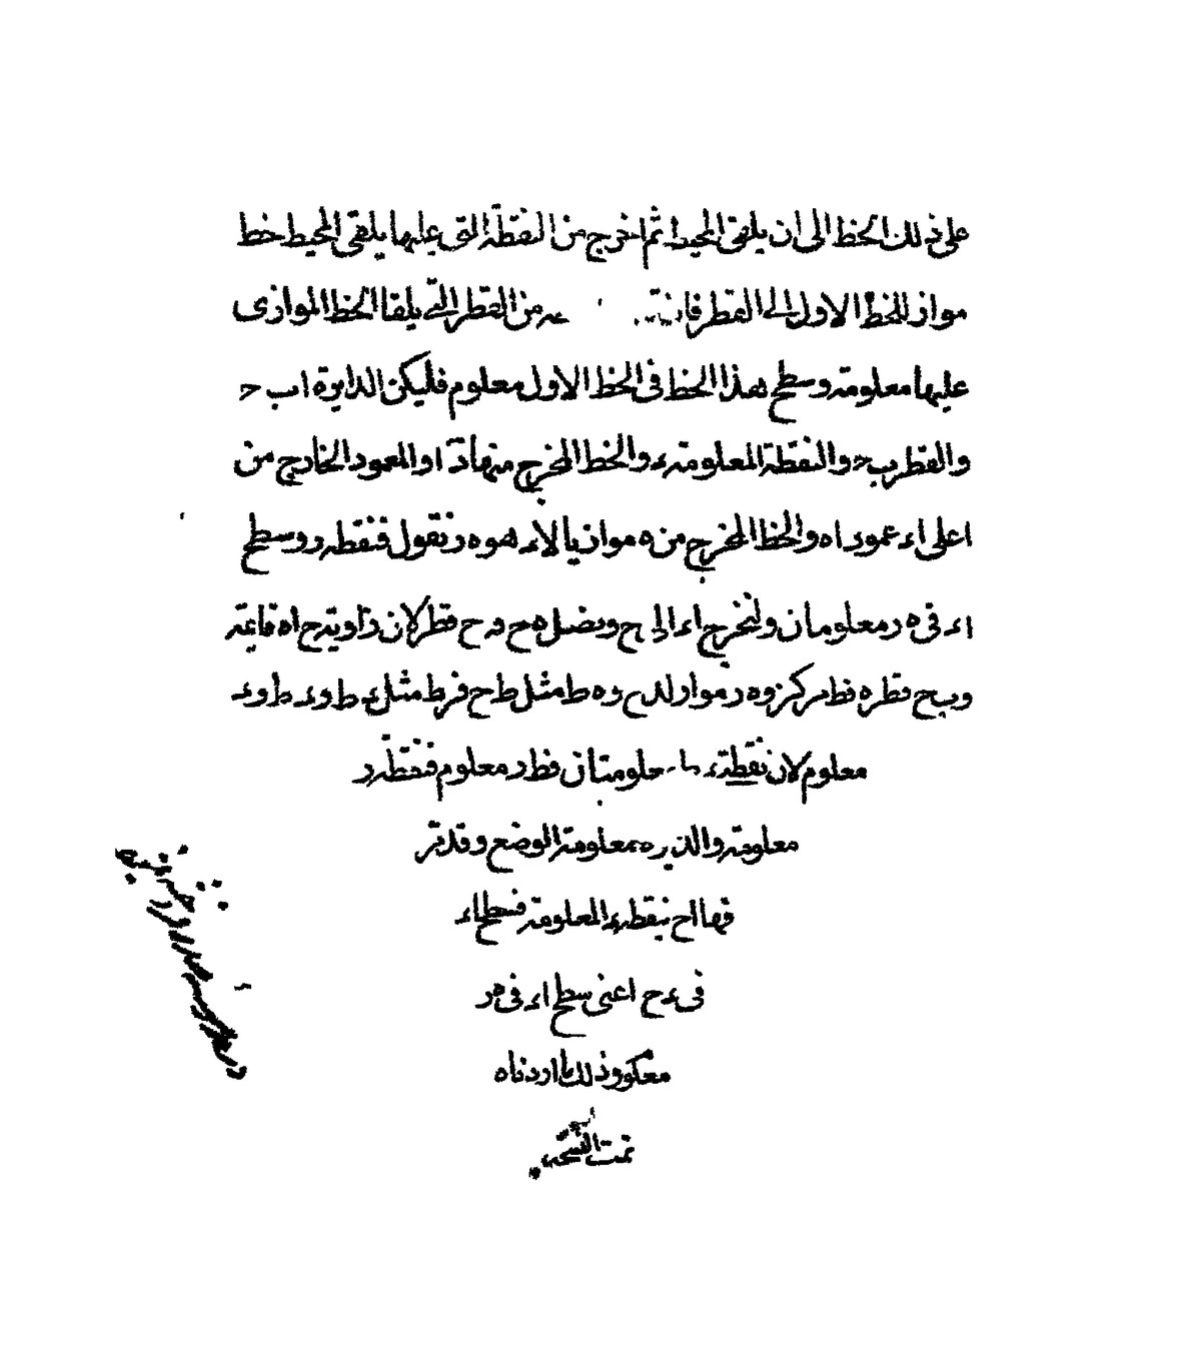 على ذلك الخط الى ان يلقى المحيط ثم اخرج من النقطة التى عليها يلقى المحيط خط
مواز للخط الاول الى القطر فان من القطر التى يلقا الخط الموازى
عليها معلومة وسطح هذا الخط فى الخط الاول معلوم فليكن الدايرة اب ح
والقطر ب ح والنقطة المعلومة ء والخط المخرج منها ء ا والعمود الخارج من
ا على اء عمود اه والخط المخرج من ه موازيا لاء هو ه ر نقول فنقطة ر وسطح
اء فى ه ر معلومان ولنخرج اء الى ح ونصل ه ح فه ح قطر لان زاوية ح اه قايمة
وب ح قطره فط مركز وه ر مواز لء ح وه ط مثل ط ح فرط مثل ء ط وء ط وء
معلوم لان نقطة ء ط معلومتان فط ر معلوم فنقطة ر
معلومة والدايره معلومة الوضع وقد مر
فيها ا ح بنقطة ء المعلومة فسطح اء
فى ء ح اعنى سطح اء فى ه ر
معلوم وذلك ما اردناه
تمت النسخة